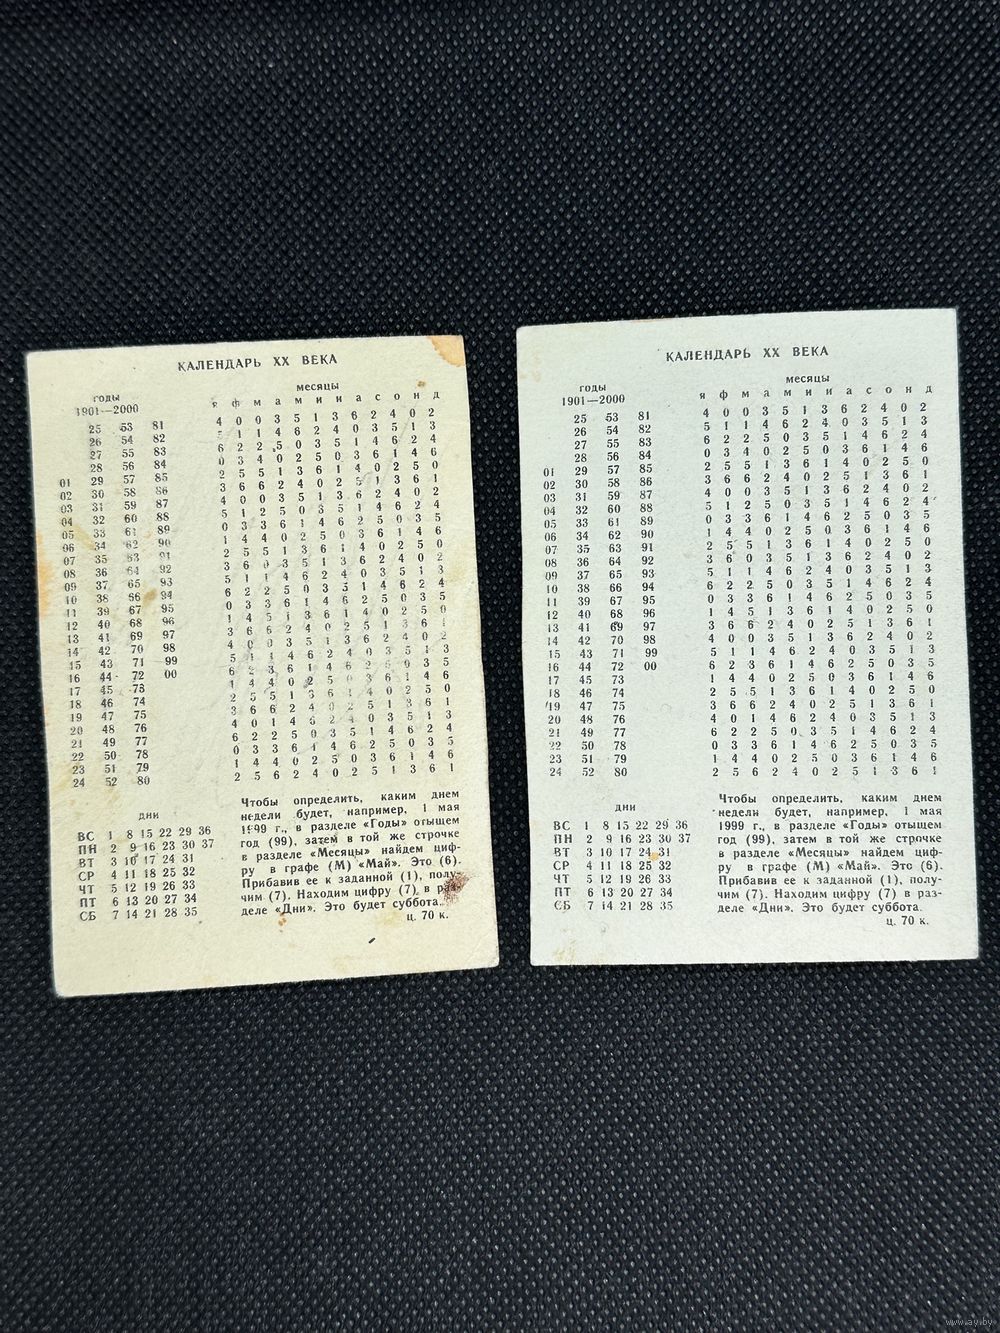 КАЛЕНДАРЬ XX ВЕКА
годы месяцы
1901—2000 я ф м а м и и а с о н д
25 53 81 4 0 0 3 5 1 3 6 2 4 0 2
26 54 82 5 1 1 4 6 2 4 0 3 5 1 3
27 55 83 6 2 2 5 0 3 5 1 4 6 2 4
28 56 84 0 3 4 0 2 5 0 3 6 1 4 6
01 29 57 85 2 5 5 1 3 6 1 4 0 2 5 0
02 30 58 86 3 6 6 2 4 0 2 5 1 3 6 1
03 31 59 87 4 0 0 3 5 1 3 6 2 4 0 2
04 32 60 88 5 1 2 5 0 3 5 1 4 6 2 4
05 33 61 89 0 3 3 6 1 4 6 2 5 0 3 5
06 34 62 90 1 4 4 0 2 5 0 3 6 1 4 6
07 35 63 91 2 5 5 1 3 6 1 4 0 2 5 0
08 36 64 92 3 6 0 3 5 1 3 6 2 4 0 2
09 37 65 93 5 1 1 4 6 2 4 0 3 5 1 3
10 38 66 94 6 2 2 5 0 3 5 1 4 6 2 4
11 39 67 95 0 3 3 6 1 4 6 2 5 0 3 5
12 40 68 96 1 4 5 1 3 6 1 4 0 2 5 0
13 41 69 97 3 6 6 2 4 0 2 5 1 3 6 1
14 42 70 98 4 0 0 3 5 1 3 6 2 4 0 2
15 43 71 99 5 1 1 4 6 2 4 0 3 5 1 3
16 44 72 00 6 2 3 6 1 4 6 2 5 0 3 5
17 45 73 1 4 4 0 2 5 0 3 6 1 4 6
18 46 74 2 5 5 1 3 6 1 4 0 2 5 0
19 47 75 3 6 6 2 4 0 2 5 1 3 6 1
20 48 76 4 0 1 4 6 2 4 0 3 5 1 3
21 49 77 6 2 2 5 0 3 5 1 4 6 2 4
22 50 78 0 3 3 6 1 4 6 2 5 0 3 5
23 51 79 1 4 4 0 2 5 0 3 6 1 4 6
24 52 80 2 5 6 2 4 0 2 5 1 3 6 1
дни
ВС 1 8 15 22 29 36
ПН 2 9 16 23 30 37
ВТ 3 10 17 24 31
СР 4 11 18 25 32
ЧТ 5 12 19 26 33
ПТ 6 13 20 27 34
СБ 7 14 21 28 35
Чтобы определить, каким днем
недели будет, например, 1 мая
1999 г., в разделе «Годы» отыщем
год (99), затем в той же строчке
в разделе «Месяцы» найдем циф-
ру в графе (М) «Май». Это (6).
Прибавив ее к заданной (1), полу-
чим (7). Находим цифру (7) в раз-
деле «Дни». Это будет суббота.
ц. 70 к.
КАЛЕНДАРЬ XX ВЕКА
годы месяцы
1901—2000 я ф м а м и и а с о н д
25 53 81 4 0 0 3 5 1 3 6 2 4 0 2
26 54 82 5 1 1 4 6 2 4 0 3 5 1 3
27 55 83 6 2 2 5 0 3 5 1 4 6 2 4
28 56 84 0 3 4 0 2 5 0 3 6 1 4 6
01 29 57 85 2 5 5 1 3 6 1 4 0 2 5 0
02 30 58 86 3 6 6 2 4 0 2 5 1 3 6 1
03 31 59 87 4 0 0 3 5 1 3 6 2 4 0 2
04 32 60 88 5 1 2 5 0 3 5 1 4 6 2 4
05 33 61 89 0 3 3 6 1 4 6 2 5 0 3 5
06 34 62 90 1 4 4 0 2 5 0 3 6 1 4 6
07 35 63 91 2 5 5 1 3 6 1 4 0 2 5 0
08 36 64 92 3 6 0 3 5 1 3 6 2 4 0 2
09 37 65 93 5 1 1 4 6 2 4 0 3 5 1 3
10 38 66 94 6 2 2 5 0 3 5 1 4 6 2 4
11 39 67 95 0 3 3 6 1 4 6 2 5 0 3 5
12 40 68 96 1 4 5 1 3 6 1 4 0 2 5 0
13 41 69 97 3 6 6 2 4 0 2 5 1 3 6 1
14 42 70 98 4 0 0 3 5 1 3 6 2 4 0 2
15 43 71 99 5 1 1 4 6 2 4 0 3 5 1 3
16 44 72 00 6 2 3 6 1 4 6 2 5 0 3 5
17 45 73 1 4 4 0 2 5 0 3 6 1 4 6
18 46 74 2 5 5 1 3 6 1 4 0 2 5 0
19 47 75 3 6 6 2 4 0 2 5 1 3 6 1
20 48 76 4 0 1 4 6 2 4 0 3 5 1 3
21 49 77 6 2 2 5 0 3 5 1 4 6 2 4
22 50 78 0 3 3 6 1 4 6 2 5 0 3 5
23 51 79 1 4 4 0 2 5 0 3 6 1 4 6
24 52 80 2 5 6 2 4 0 2 5 1 3 6 1
дни
ВС 1 8 15 22 29 36
ПН 2 9 16 23 30 37
ВТ 3 10 17 24 31
СР 4 11 18 25 32
ЧТ 5 12 19 26 33
ПТ 6 13 20 27 34
СБ 7 14 21 28 35
Чтобы определить, каким днем
недели будет, например, 1 мая
1999 г., в разделе «Годы» отыщем
год (99), затем в той же строчке
в разделе «Месяцы» найдем циф-
ру в графе (М) «Май». Это (6).
Прибавив ее к заданной (1), полу-
чим (7). Находим цифру (7) в раз-
деле «Дни». Это будет суббота.
ц. 70 к.
www.ay.by